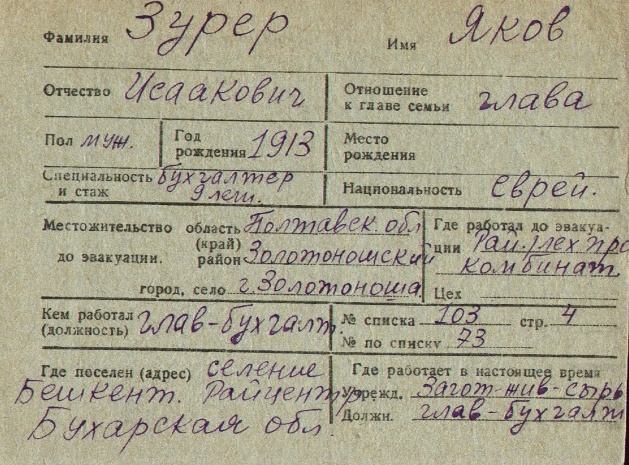 Фамилия Зурер Имя Яков
Отчество Исаакович Отношение к главе семьи глава
Пол муж. Год рождения 1913 Место рождения
Специальность и стаж бухгалтер 9 лет. Национальность еврей.
Местожительство до эвакуации. область (край) Полтавск. обл
район Золотоношский
город, село г. Золотоноша
Где работал до эвакуации Рай. комбинат
Цех
Кем работал (должность) глав-бухгалт.
№ списка 103 стр. 4
№ по списку 73
Где поселен (адрес) селение
Бешкент. Райцентр
Бухарская обл.
Где работает в настоящее время
Учрежд. Загот-жив-сырь
Должн. глав-бухгалт